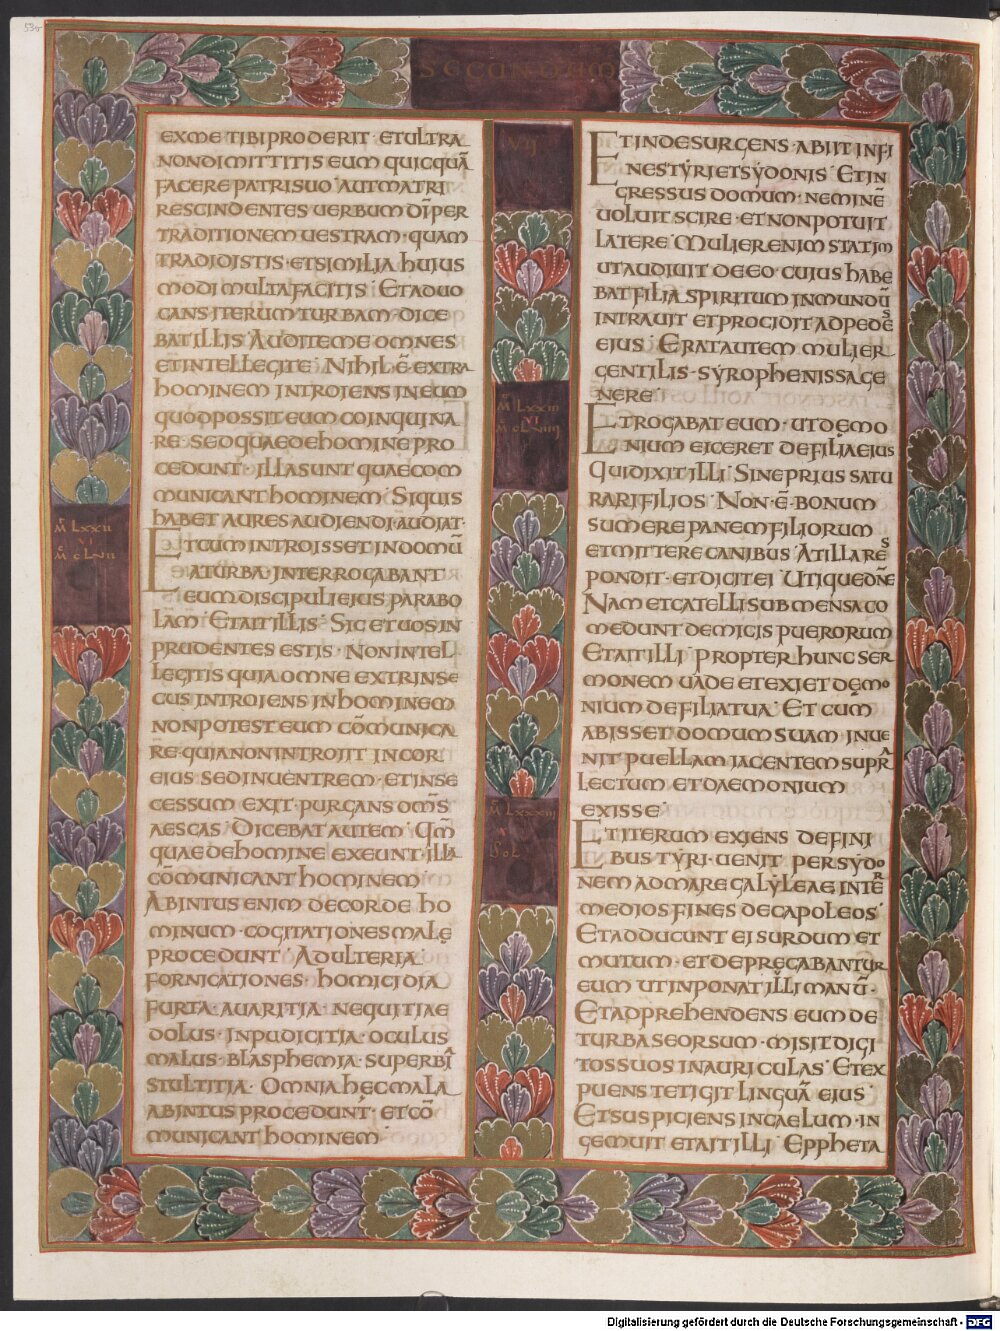 53v
SECUNDUM
EXME TIBI PRODERIT · ET ULTRA
NON DIMITTITIS EUM QUICQUĀ
FACERE PATRI SUO AUT MATRI
RESCINDENTES UERBUM DĪ PER
TRADITIONEM UESTRAM · QUAM
TRADIDISTIS · ET SIMILIA HUIUS
MODI MULTA FACITIS · ET ADUO
CANS ITERUM TURBAM · DICE
BAT ILLIS · AUDITE ME OMNES
ET INTELLEGITE · NIHIL Ē EXTRA
HOMINEM INTROIENS IN EUM
QUOD POSSIT EUM COINQUINA
RE · SED QUAE DE HOMINE PRO
CEDUNT · ILLA SUNT QUAE COM
MUNICANT HOMINEM · SI QUIS
HABET AURES AUDIENDI AUDIAT ·
M̄ LXXII
VI
M̄ CLVII
ET CUM INTROISSET IN DOMŪ
A TURBA · INTERROGABANT
EUM DISCIPULI EIUS PARABO
LAM · ET AIT ILLIS · SIC ET UOS IN
PRUDENTES ESTIS · NON INTEL
LEGITIS QUIA OMNE EXTRINSE
CUS INTROIENS IN HOMINEM
NON POTEST EUM CŌMUNICA
RE · QUIA NON INTROIIT IN COR
EIUS SED IN UENTREM · ET IN SE
CESSUM EXIT · PURGANS OM̄S
AESCAS · DICEBAT AUTEM · QM̄
QUAE DE HOMINE EXEUNT · ILLA
CŌMUNICANT HOMINEM
AB INTUS ENIM DE CORDE HO
MINUM · COGITATIONES MALĘ
PROCEDUNT · ADULTERIA ·
FORNICATIONES · HOMICIDIA
FURTA · AUARITIA · NEQUITIAE
DOLUS · INPUDICITIA · OCULUS
MALUS · BLASPHEMIA · SUPERBIA
STULTITIA · OMNIA HĘC MALA
AB INTUS PROCEDUNT · ET CŌ
MUNICANT HOMINEM
ET INDE SURGENS · ABIIT IN FI
NES TYRI ET SYDONIS · ET IN
GRESSUS DOMUM · NEMINĒ
UOLUIT SCIRE · ET NON POTUIT
LATERE · MULIER ENIM STATIM
UT AUDIUIT DE EO · CUIUS HABE
BAT FILIA SPIRITUM INMUNDŪ
INTRAUIT ET PROCIDIT AD PEDES
EIUS · ERAT AUTEM MULIER
GENTILIS · SYROPHENISSA GE
NERE ·
M̄ LXXIII
VI
M̄ CLVIIII
ET ROGABAT EUM · UT DĘMO
NIUM EICERET DE FILIA EIUS
QUI DIXIT ILLI · SINE PRIUS SATU
RARI FILIOS · NON Ē BONUM
SUMERE PANEM FILIORUM
ET MITTERE CANIBUS · AT ILLA RES
PONDIT · ET DICIT EI · UTIQUE DN̄E
NAM ET CATELLI SUB MENSA CO
MEDUNT DE MICIS PUERORUM
ET AIT ILLI · PROPTER HUNC SER
MONEM UADE ET EXIET DĘMO
NIUM DE FILIA TUA · ET CUM
ABISSET DOMUM SUAM · INUE
NIT PUELLAM IACENTEM SUPRA
LECTUM · ET DAEMONIUM
EXISSE ·
M̄ LXXIIII
SOL
ET ITERUM EXIENS DE FINI
BUS TYRI · UENIT PER SYDO
NEM AD MARE GALYLEAE INTER
MEDIOS FINES DECAPOLEOS ·
ET ADDUCUNT EI SURDUM ET
MUTUM · ET DEPRECABANTUR
EUM UT INPONAT ILLI MANŪ ·
ET ADPREHENDENS EUM DE
TURBA SEORSUM · MISIT DIGI
TOS SUOS IN AURICULAS · ET EX
PUENS TETIGIT LINGUĀ EIUS ·
ET SUSPICIENS IN CAELUM · IN
GEMUIT ET AIT ILLI · EPPHETA
Digitalisierung gefördert durch die Deutsche Forschungsgemeinschaft - DFG